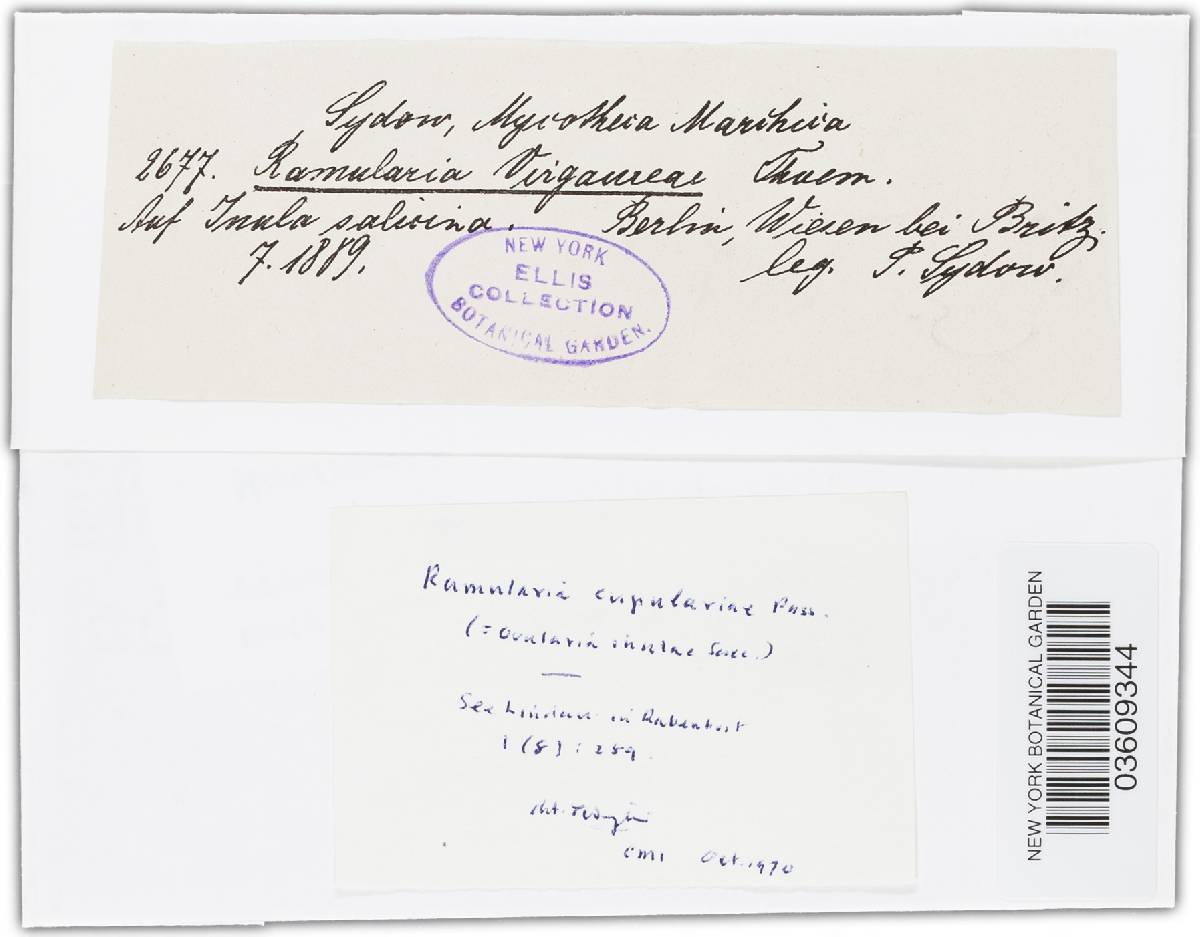 Sydow, Mycotheca Marchica
2677. Ramularia Virgaureae Thuem.
Auf Inula salicina. Berlin, Wiesen bei Britz.
7. 1889. leg. P. Sydow.
NEW YORK
ELLIS
COLLECTION
BOTANICAL GARDEN.
Ramularia cupulariae Pass.
(= Ovularia inulae Sacc.)
See Lindau in Rabenhorst
1 (8) : 259.
CMI Oct. 1970
NEW YORK BOTANICAL GARDEN
03609344